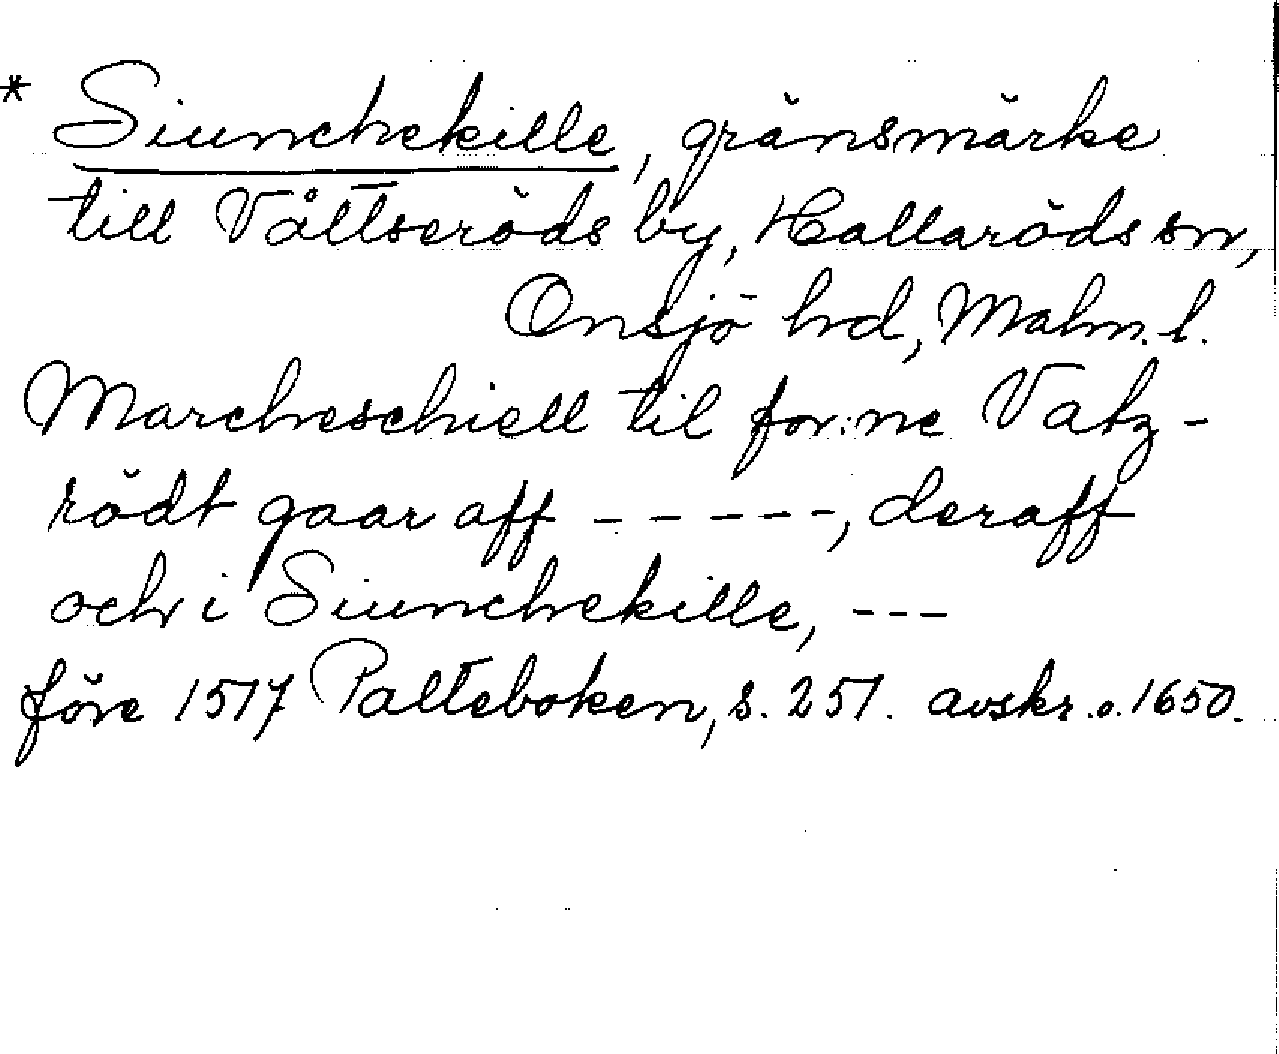 * Siunchekille, gränsmärke
till Våltseröds by, Hallaröds sn,
Onsjö hd, Malm. l.
Marcheschiell til for:ne Vatz-
rödt gaar aff - - - - -, deraff
och i Siunchekille, - - -
före 1517 Palteboken, s. 251. avskr. o. 1650.